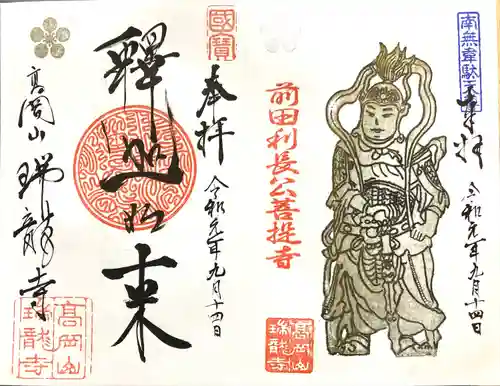 南無韋駄天
奉拝
令和元年九月十四日
前田利長公菩提寺
高岡山
瑞龍寺
國寳
奉拝
令和元年九月十四日
釋迦如来
高岡山
瑞龍寺
高岡山
瑞龍寺